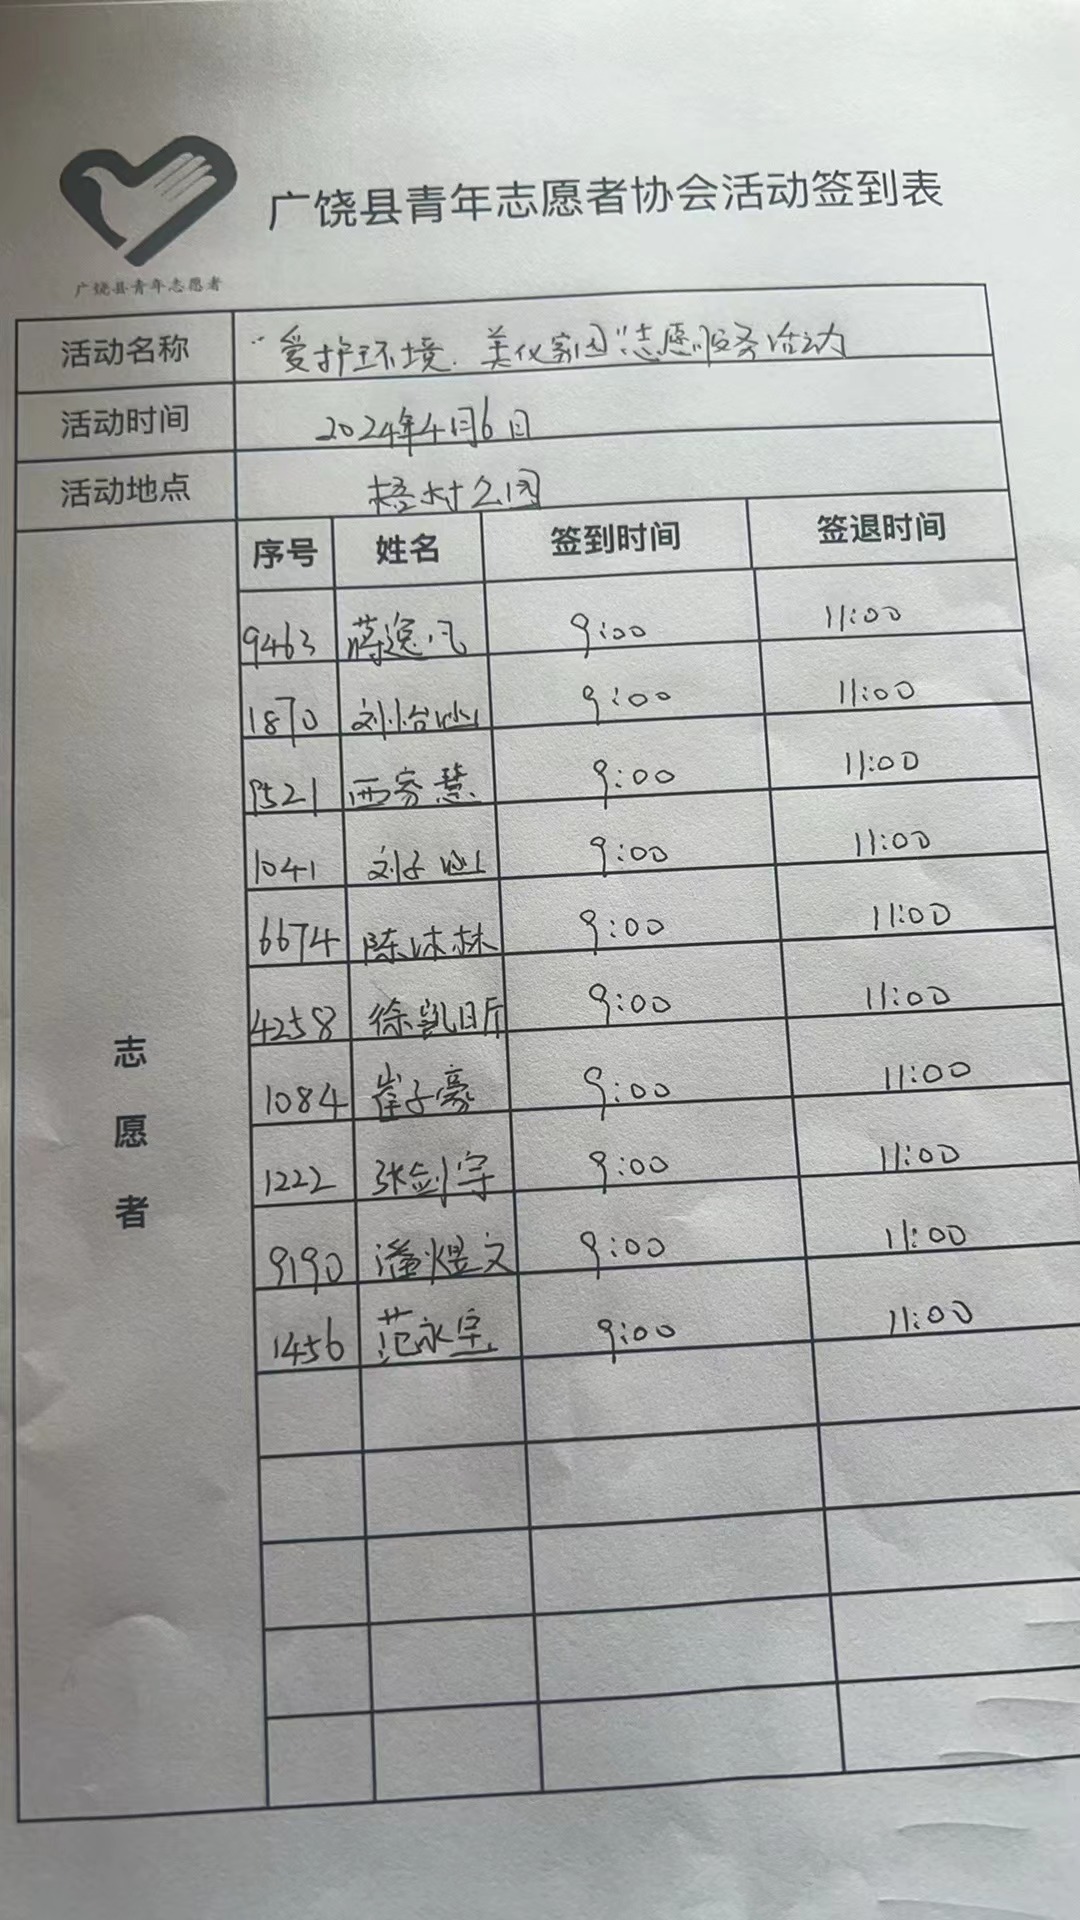 广饶县青年志愿者协会活动签到表
广饶县青年志愿者
活动名称 “爱护环境.美化家园”志愿服务活动
活动时间 2024年4月6日
活动地点 梧村公园
序号 姓名 签到时间 签退时间
9463 蒋逸凡 9:00 11:00
1870 刘怡灿 9:00 11:00
9521 西家慧 9:00 11:00
1041 刘子灿 9:00 11:00
6674 陈沐林 9:00 11:00
4258 徐凯昕 9:00 11:00
1084 崔子豪 9:00 11:00
1222 张剑宇 9:00 11:00
9190 潘煜文 9:00 11:00
1456 范永 9:00 11:00
志愿者